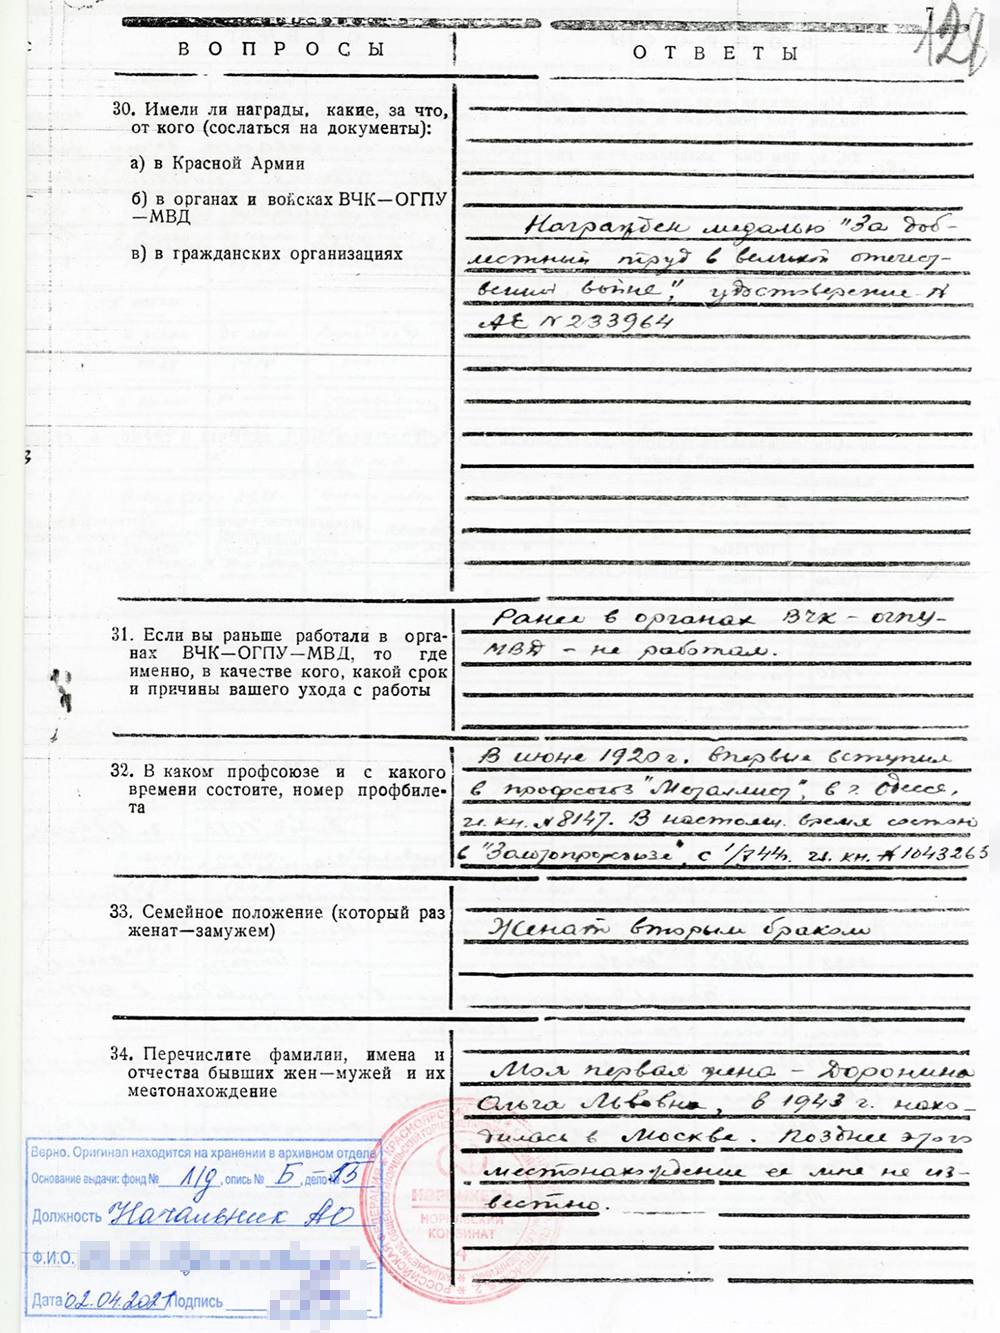 7
128
ВОПРОСЫ
ОТВЕТЫ
30. Имели ли награды, какие, за что,
от кого (сослаться на документы):
а) в Красной Армии
б) в органах и войсках ВЧК—ОГПУ
—МВД
в) в гражданских организациях
Награжден медалью "За доб-
лестный труд в великой отечест-
венной войне", удостоверение №
АЕ № 233964
31. Если вы раньше работали в орга-
нах ВЧК—ОГПУ—МВД, то где
именно, в качестве кого, какой срок
и причины вашего ухода с работы
Ранее в органах ВЧК - ОГПУ-
МВД - не работал.
32. В каком профсоюзе и с какого
времени состоите, номер профбиле-
та
В июне 1920 г. впервые вступил
в профсоюз "Металлист", в г. Одессе,
чл. кн. № 8147. В настоящ. время состою
в "Золотопродснабе", с 44. чл. кн. № 1043263
33. Семейное положение (который раз
женат—замужем)
Женат вторым браком
34. Перечислите фамилии, имена и
отчества бывших жен—мужей и их
местонахождение
Моя первая жена - Доронина
Ольга Львовна, в 1943 г. нахо-
дилась в Москве. Позднее этого
местонахождение ее мне не из-
вестно.
Верно. Оригинал находится на хранении в архивном отделе
Основание выдачи: фонд № л/д, опись № Б, дело № 15
Должность Начальник АО
Ф.И.О.
Дата 02.04.2021 Подпись
НОРИЛЬСКИЙ
КОМБИНАТ